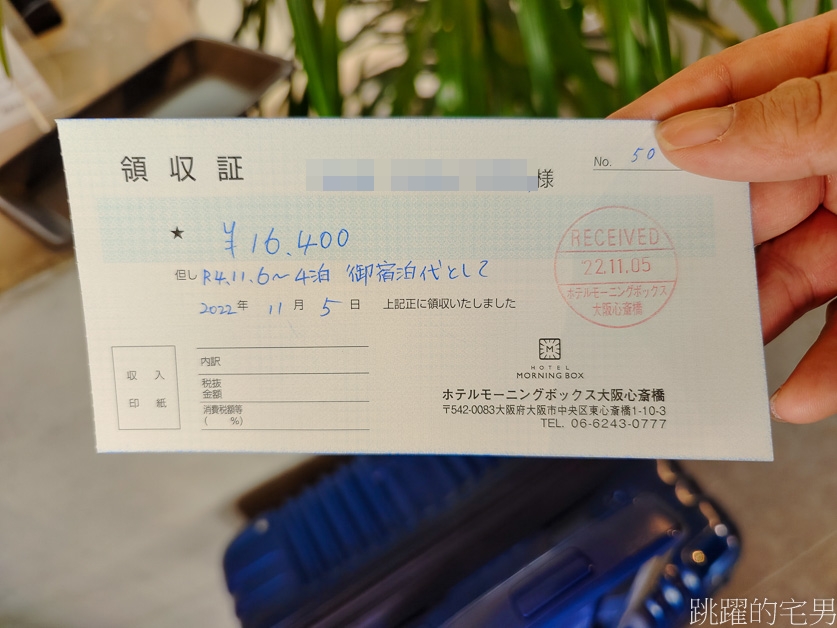 領収証
様
No. 50
★ ¥16.400
但し R4.11.6〜4泊 御宿泊代として
2022年 11月 5日 上記正に領収いたしました
RECEIVED
22.11.05
ホテルモーニングボックス
大阪心斎橋
収入
印紙
内訳
税抜
金額
消費税額等
( %)
HOTEL
MORNING BOX
ホテルモーニングボックス大阪心斎橋
〒542-0083大阪府大阪市中央区東心斎橋1-10-3
TEL. 06-6243-0777
跳躍的宅男